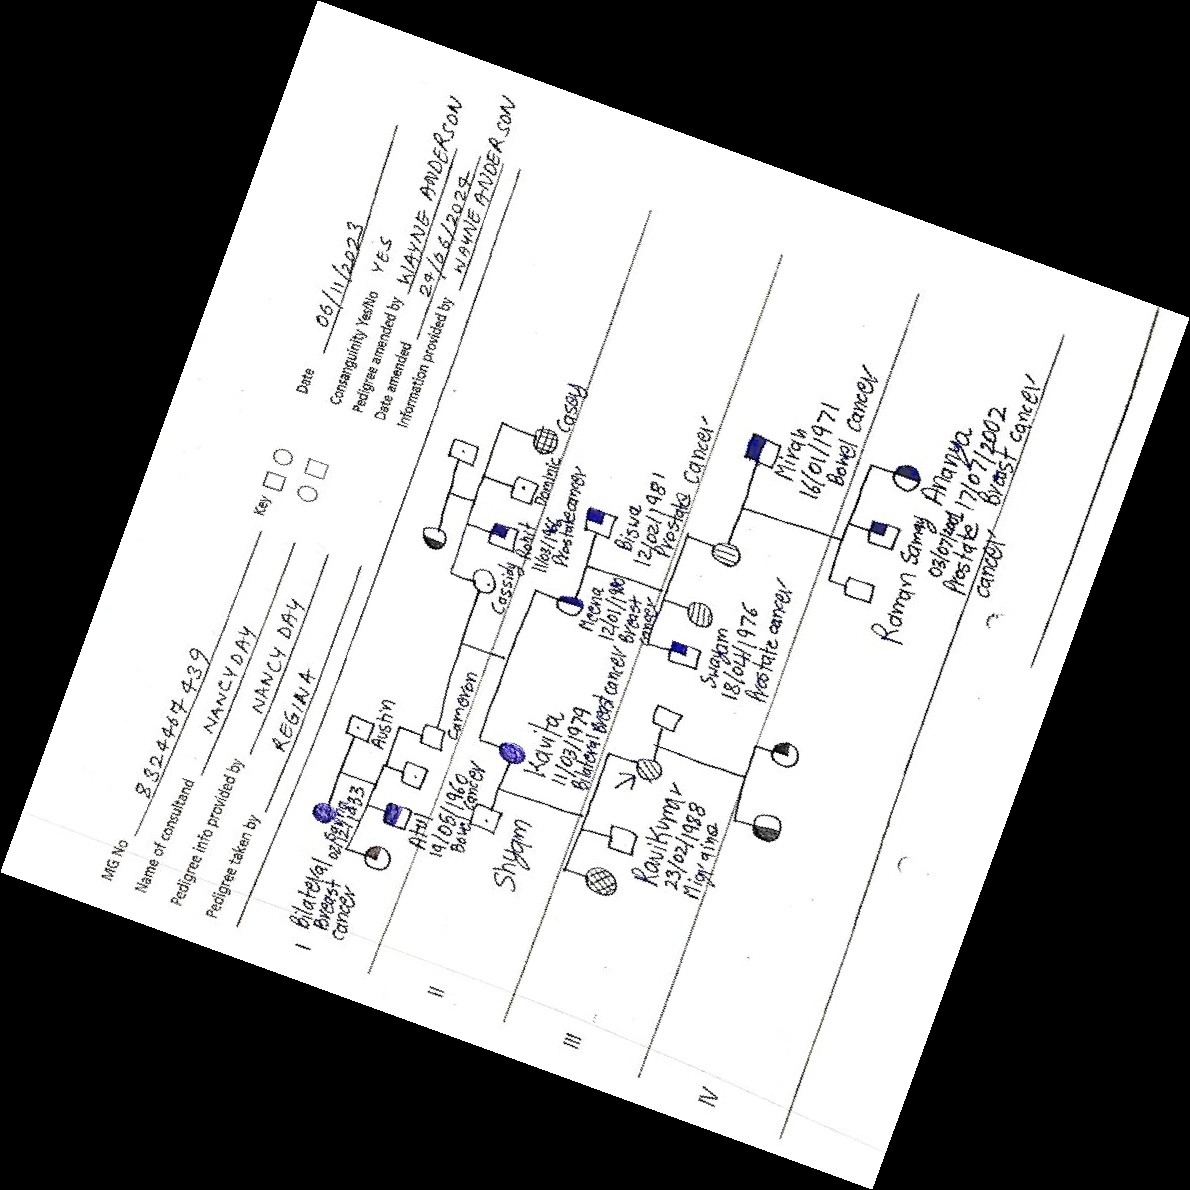 MG No 8324467439
Name of consultand NANCY DAY
Pedigree info provided by NANCY DAY
Pedigree taken by REGINA
Key
Date 06/11/2023
Consanguinity Yes/No YES
Pedigree amended by WAYNE ANDERSON
Date amended 24/06/2024
Information provided by WAYNE ANDERSON
I
Bilateral
Breast
cancer
Austin
II
Atul
19/05/1960
Bowel cancer
Cameron
Cassidy
Rohit
11/02/1966
Prostate cancer
Dominic
Casey
III
Shyam
Kavita
11/03/1979
Bilateral Breast cancer
Meena
12/01/1980
Breast
cancer
Biswa
12/02/1981
Prostate cancer
IV
RaviKumar
23/02/1988
Migraine
Swayam
18/04/1976
Prostate cancer
Mirah
16/01/1971
Bowel cancer
Raman
Samay
03/07/2001
Prostate
cancer
Ananya
17/07/2002
Breast cancer